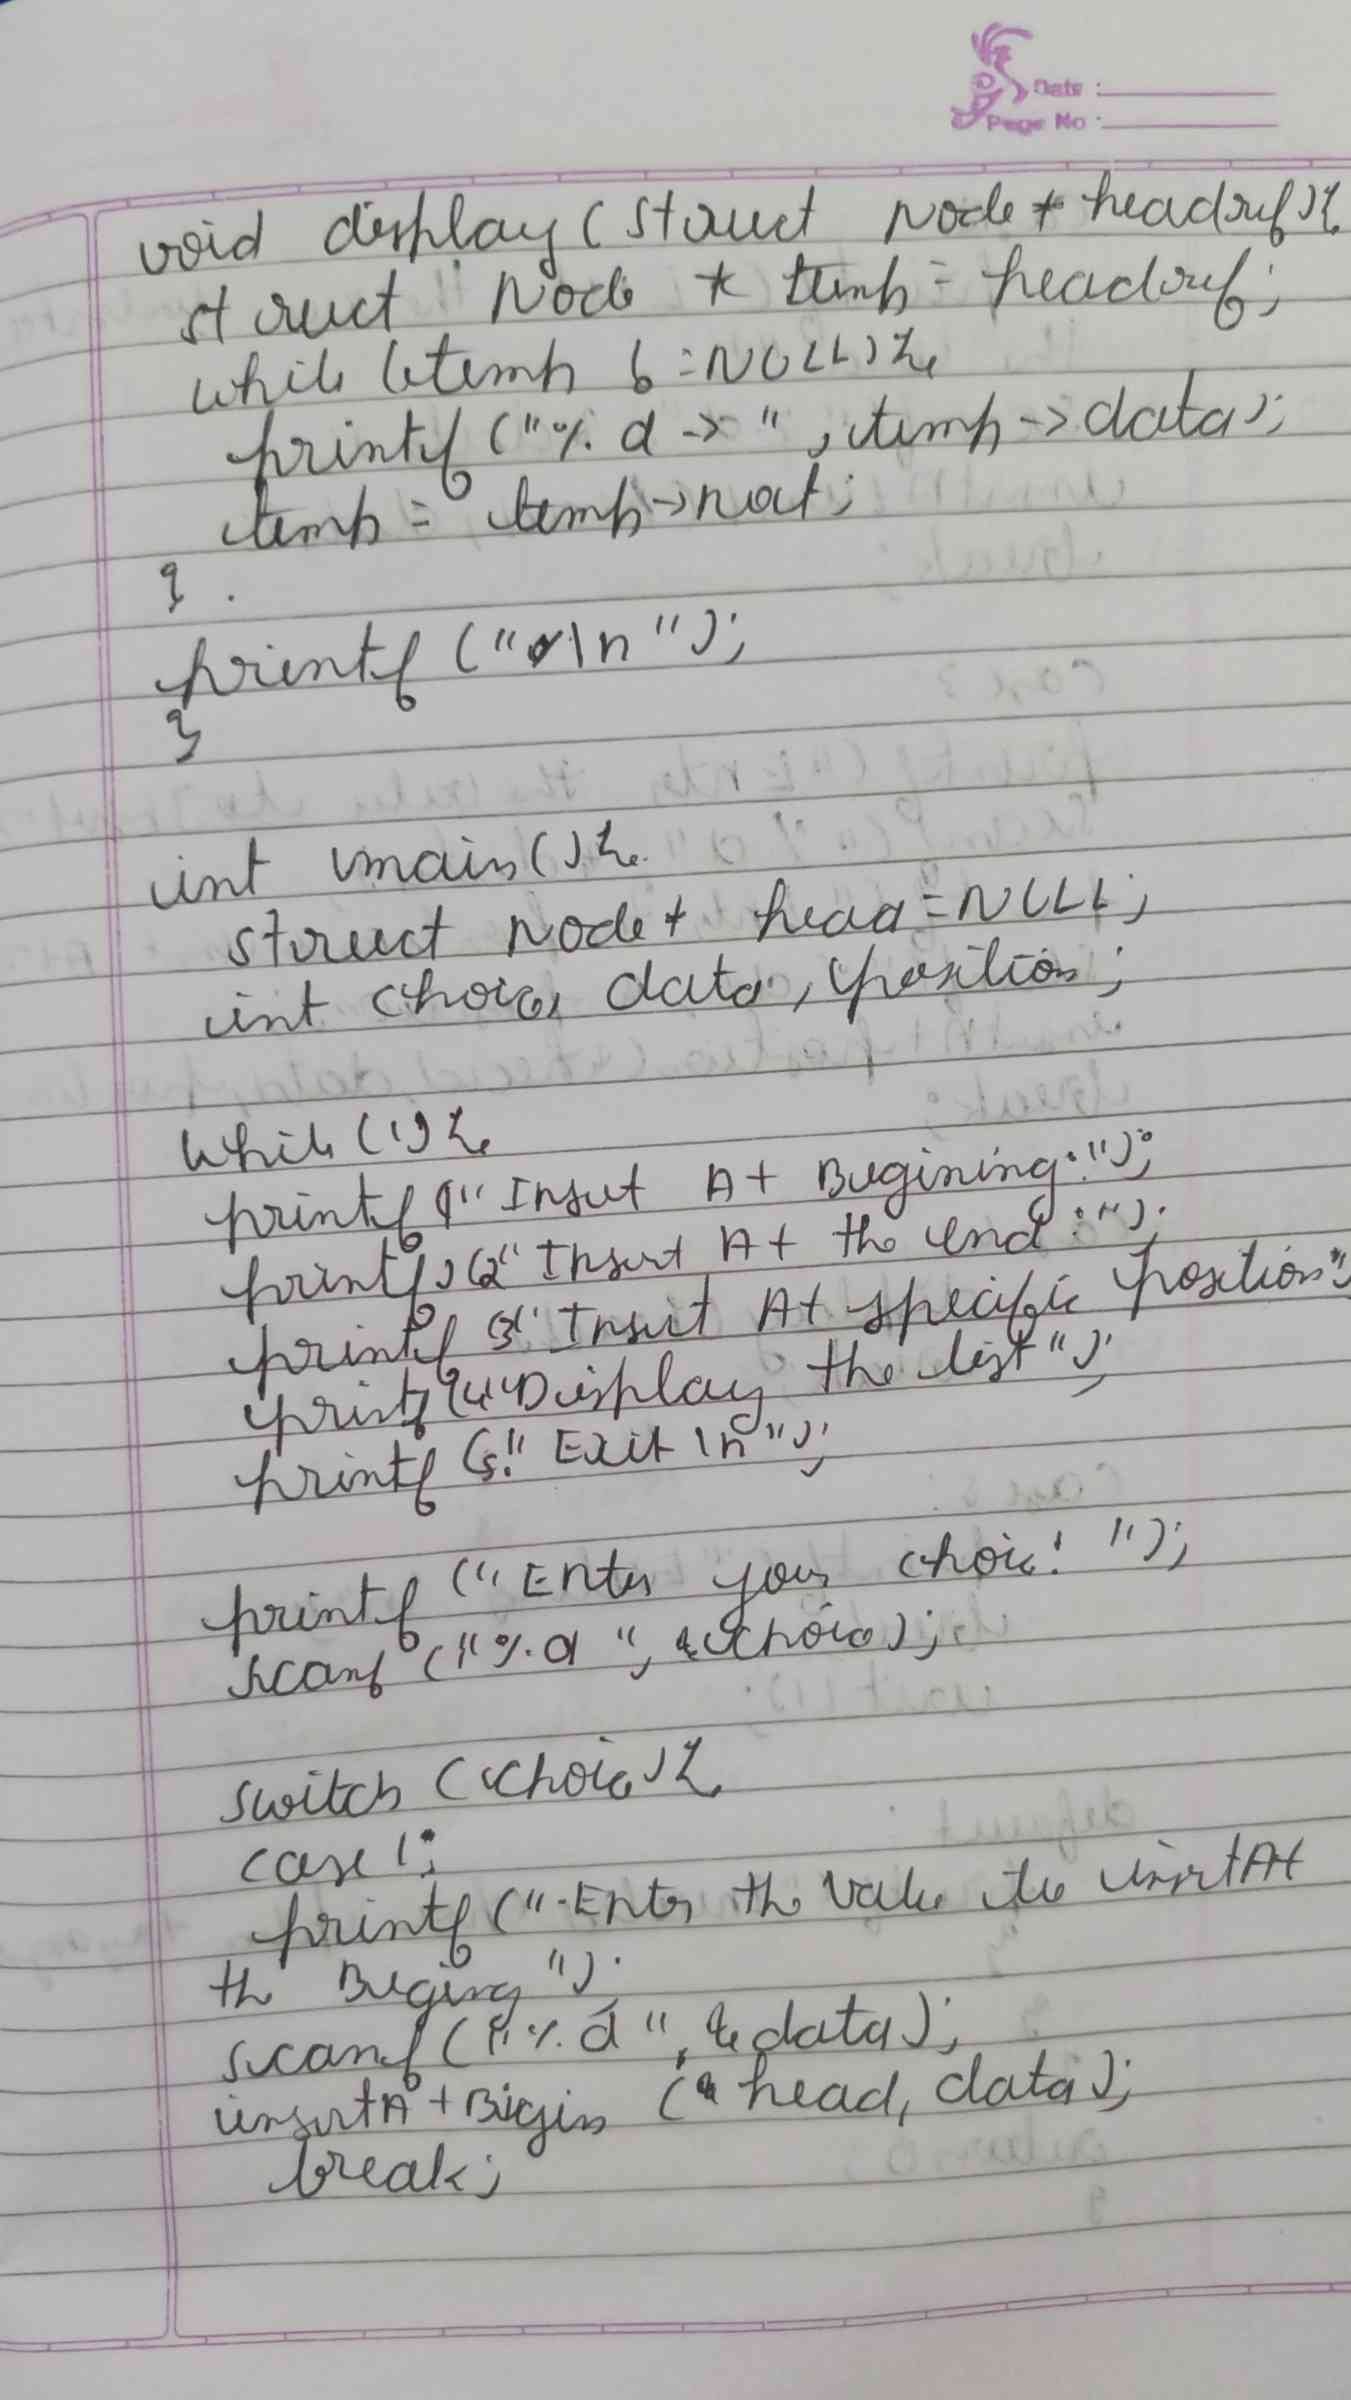 Date :
Page No :
void display (struct Node * headref){
struct Node * temp = headref;
while (temp != NULL){
printf ("%d -> ", temp->data);
temp = temp->next;
}
printf ("\n");
}
int main(){
struct Node * head = NULL;
int choice, data, position;
while (1){
printf ("1 Insert At Begining:");
printf ("2 Insert At the end :");
printf ("3 Insert At specific position");
printf ("4 Display the list");
printf ("5. Exit \n");
printf ("Enter your choice: ");
scanf ("%d", &choice);
switch (choice){
case 1:
printf ("Enter the value to insertAt
the Beging");
scanf ("%d", &data);
insertAtBegin (& head, data);
break;